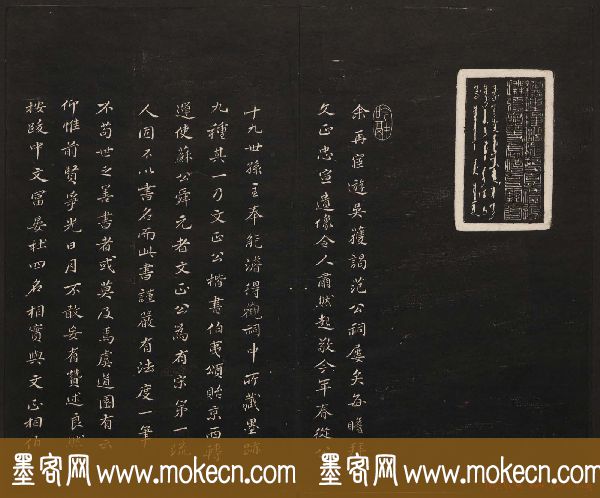 余再宦遊吳獲謁范公祠屢矣每瞻拜
文正忠宣遺像令人肅然起敬今年春從公
十九世孫主奉能濬得觀祠中所藏墨跡
九種其一乃文正公楷書伯夷頌貽京西轉
運使蘇公舜元者文正公為有宋第一流
人固不以書名而此書謹嚴有法度一筆
不苟世之善書者或莫及焉虞道園有云
仰惟前賢爭光日月不敢妄有贊述良然
按跋中文富晏杜四名相實與文正相伯
墨客网 www.mokecn.com 墨客网 www.mokecn.com